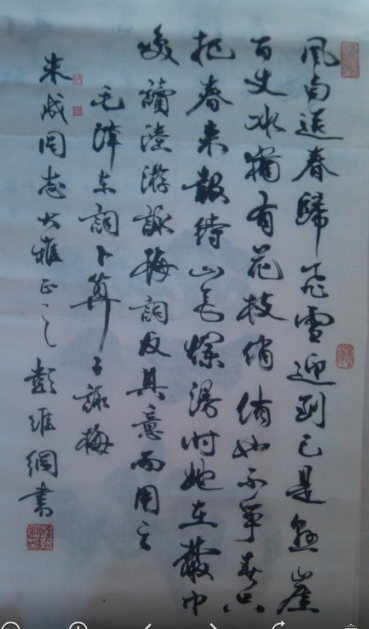 風雨送春歸飛雪迎到已是懸崖
百丈冰猶有花枝俏俏也不爭春只
把春來報待山花爛漫時她在叢中
咲讀陸游詠梅詞反其意而用之
毛澤東詞卜算子詠梅
朱成同志大雅正之彭維綱書